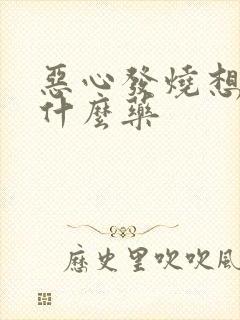 惡心發燒想
什麼藥
歷史里吹吹風